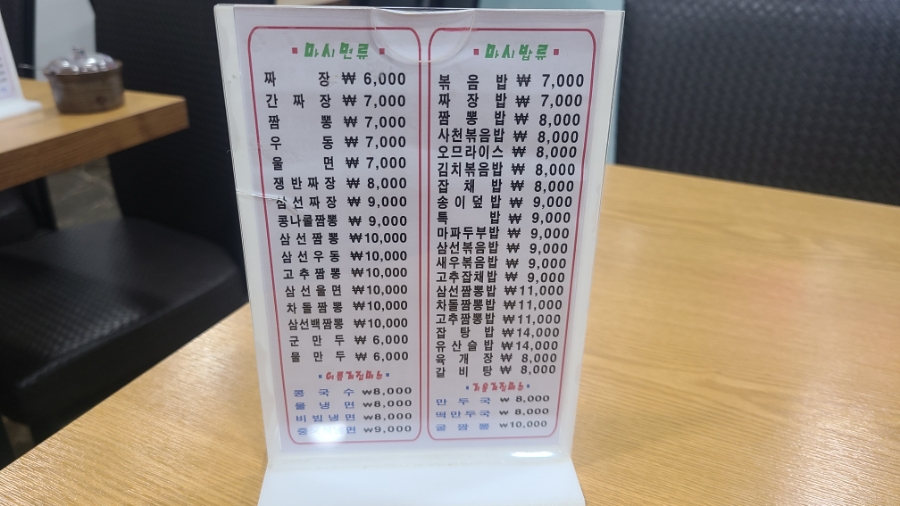 마시면류
짜장 ₩ 6,000
간짜장 ₩ 7,000
짬뽕 ₩ 7,000
우동 ₩ 7,000
울면 ₩ 7,000
쟁반짜장 ₩ 8,000
삼선짜장 ₩ 9,000
콩나물짬뽕 ₩ 9,000
삼선짬뽕 ₩10,000
삼선우동 ₩10,000
고추짬뽕 ₩10,000
삼선울면 ₩10,000
차돌짬뽕 ₩10,000
삼선백짬뽕 ₩10,000
군만두 ₩ 6,000
물만두 ₩ 6,000
콩국수 ₩8,000
물냉면 ₩8,000
비빔냉면 ₩8,000
면 ₩9,000
마시밥류
볶음밥 ₩ 7,000
짜장밥 ₩ 7,000
짬뽕밥 ₩ 8,000
사천볶음밥 ₩ 8,000
오므라이스 ₩ 8,000
김치볶음밥 ₩ 8,000
잡채밥 ₩ 8,000
송이덮밥 ₩ 9,000
특밥 ₩ 9,000
마파두부밥 ₩ 9,000
삼선볶음밥 ₩ 9,000
새우볶음밥 ₩ 9,000
고추잡채밥 ₩ 9,000
삼선짬뽕밥 ₩11,000
차돌짬뽕밥 ₩11,000
고추짬뽕밥 ₩11,000
잡탕밥 ₩14,000
유산슬밥 ₩14,000
육개장 ₩ 8,000
갈비탕 ₩ 8,000
만두국 ₩ 8,000
떡만두국 ₩ 8,000
굴짬뽕 ₩10,000